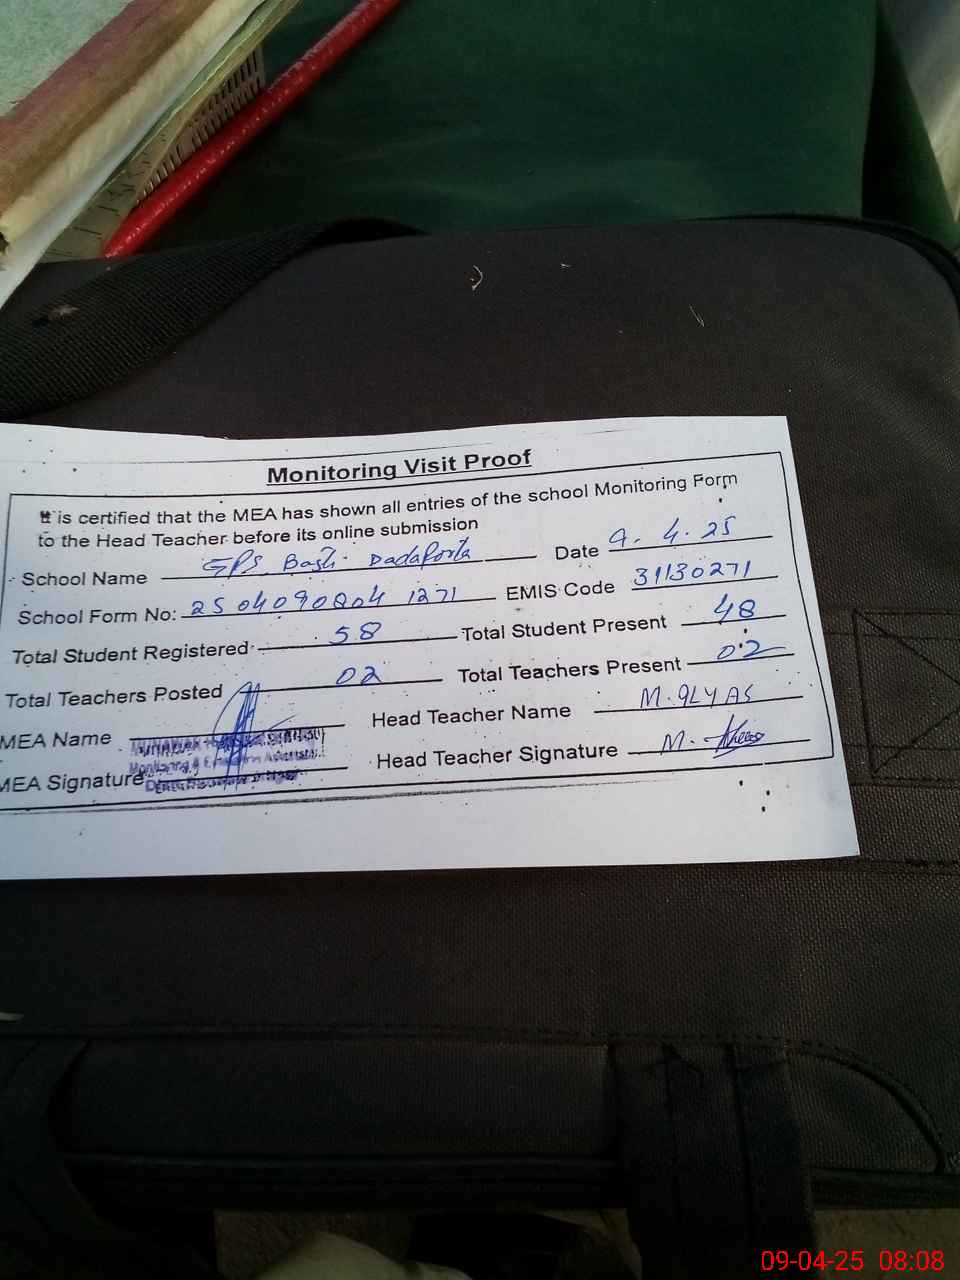 Monitoring Visit Proof
It is certified that the MEA has shown all entries of the school Monitoring Form
to the Head Teacher before its online submission
School Name GPS Basti Dadaporta Date 9.4.25
School Form No: 2504090804 1271 EMIS Code 31130271
Total Student Registered 58 Total Student Present 48
Total Teachers Posted 02 Total Teachers Present 02
MEA Name Head Teacher Name M. ILYAS
MEA Signature Head Teacher Signature M.
Monitoring &
09-04-25 08:08